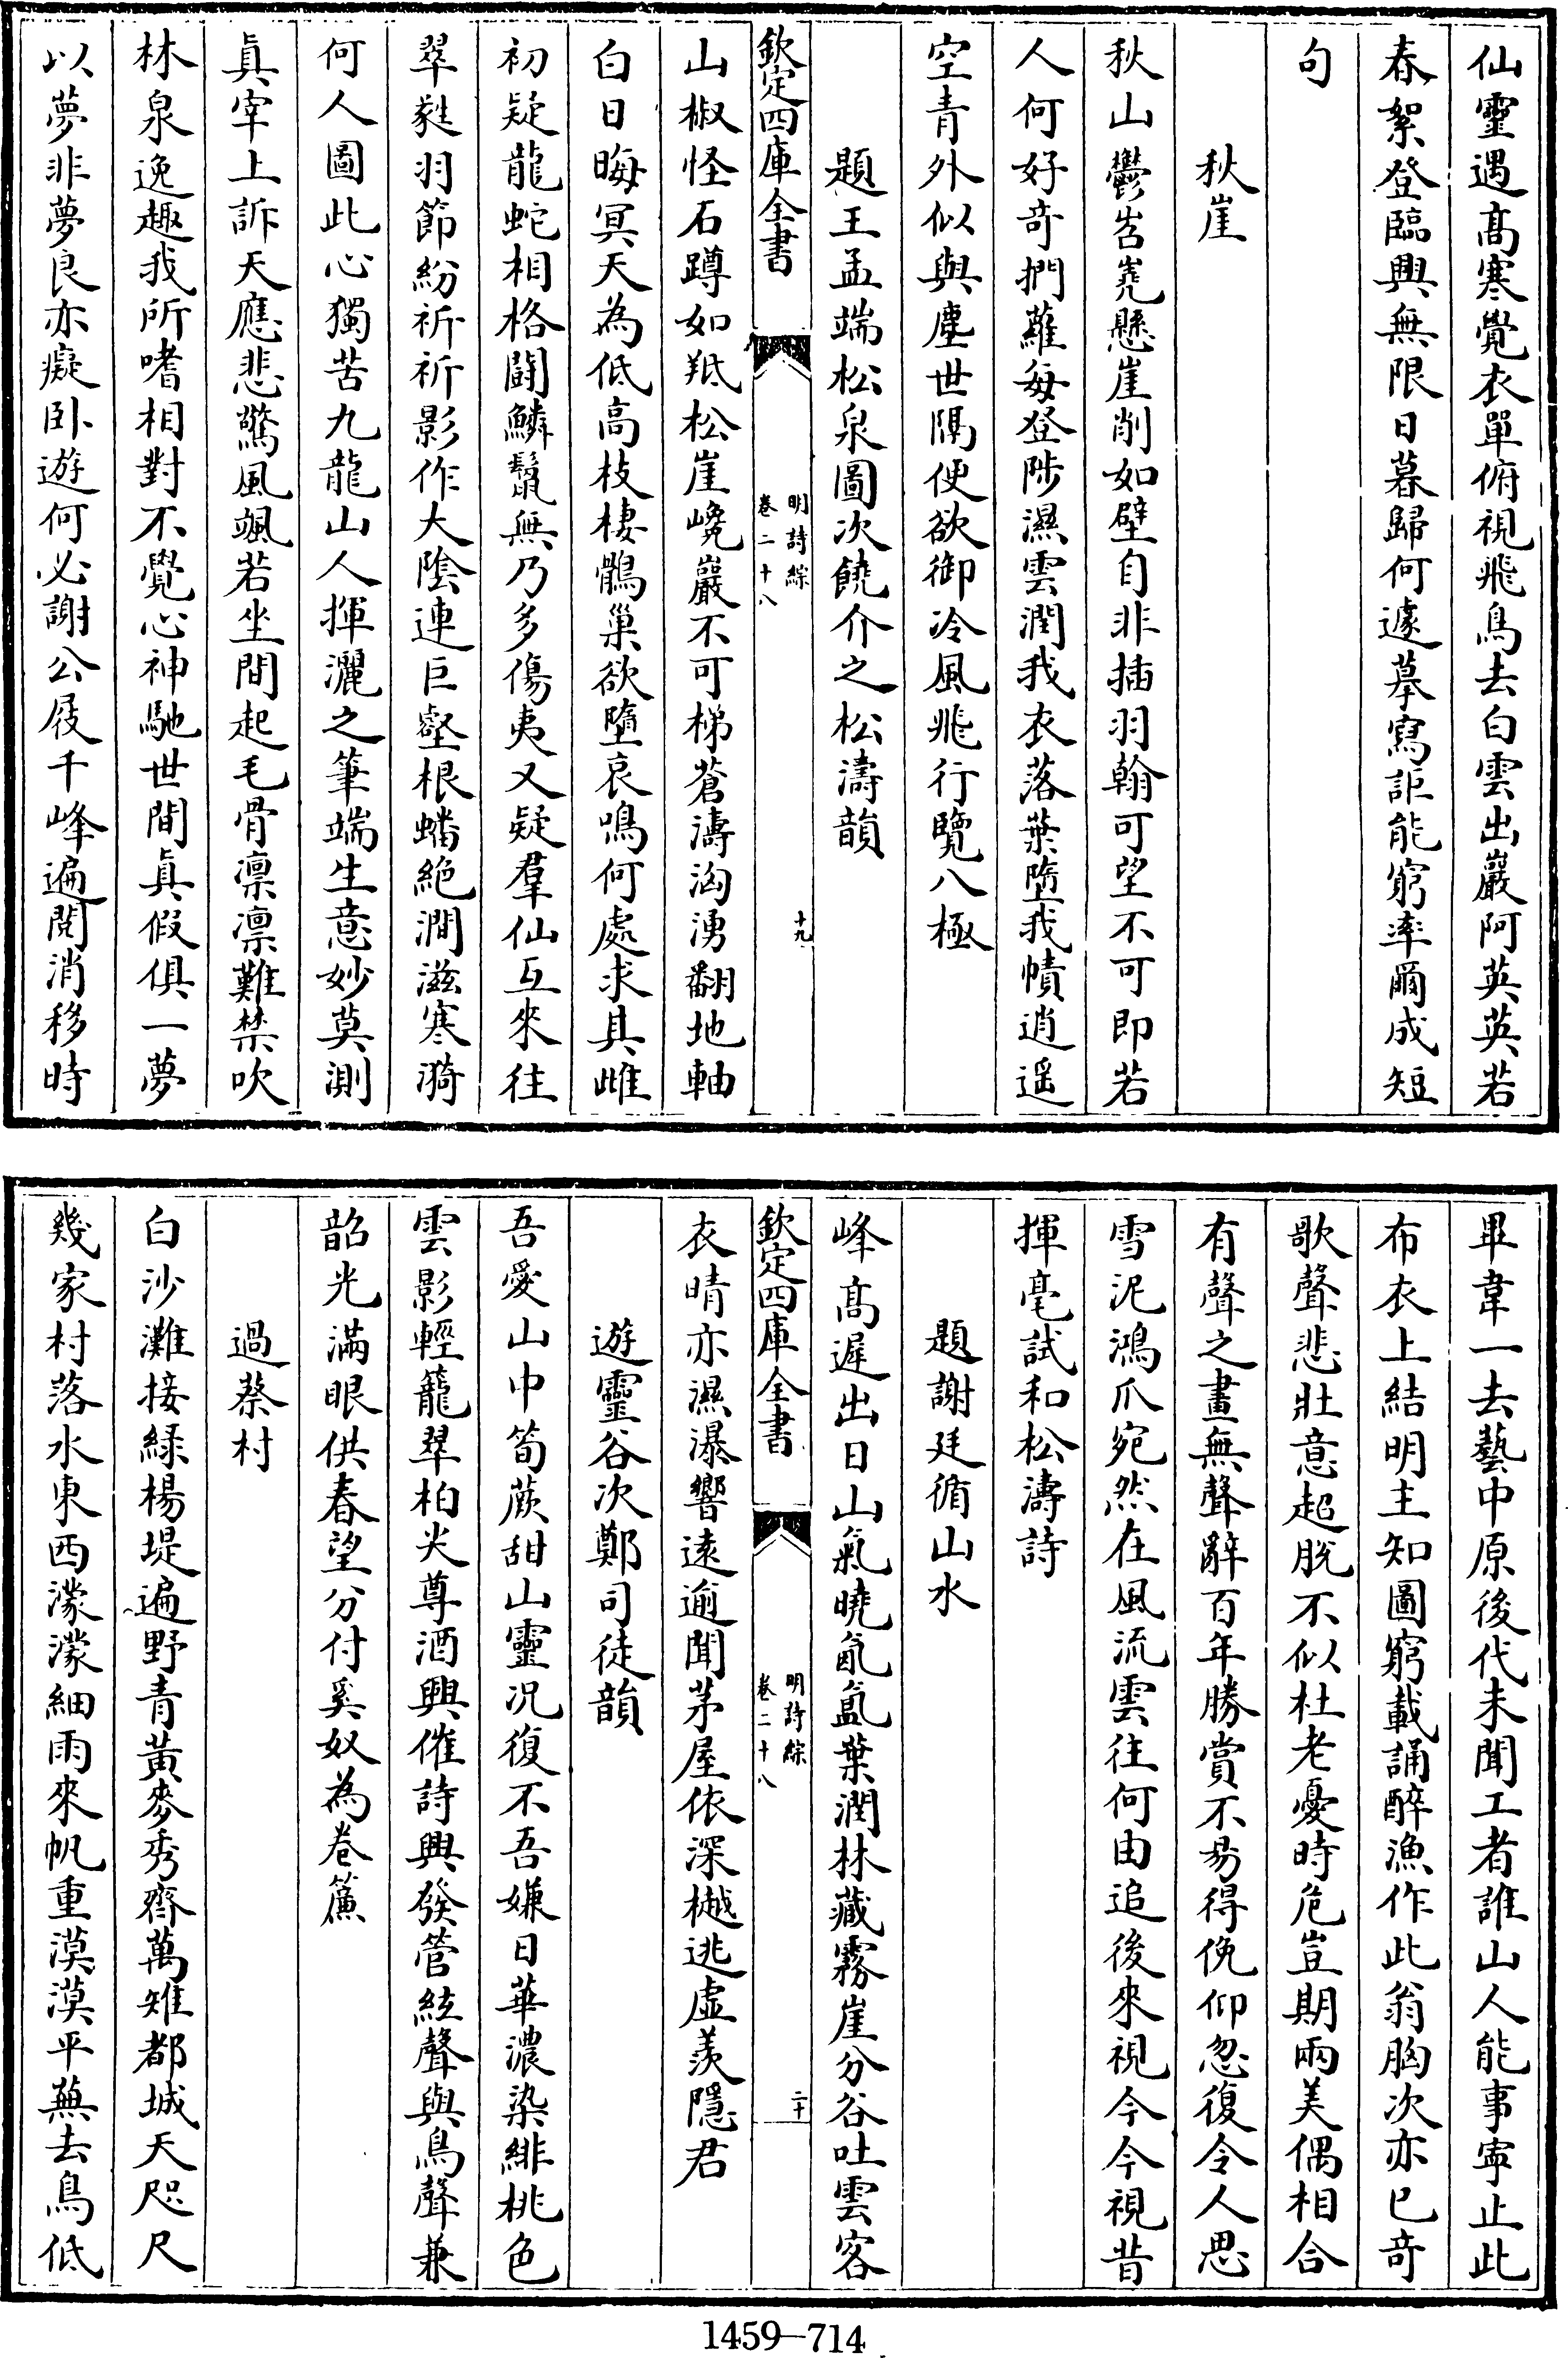 仙靈遇髙寒覺衣單俯視飛鳥去白雲出巖阿英英若
春絮登臨興無限日暮歸何遽摹寫詎能窮率爾成短
句
秋崖
秋山鬱岧嶤懸崖削如壁自非插羽翰可望不可即若
人何好奇捫蘿每登陟濕雲潤我衣落葉墮我幘逍遥
空青外似與塵世隔便欲御冷風飛行覽八極
題王孟端松泉圖次饒介之松濤韻
欽定四庫全書
明詩綜
卷二十八
十九
山椒怪石蹲如羝松崖巉巖不可梯蒼濤洶湧翻地軸
白日晦冥天為低高枝棲鶻巢欲墮哀鳴何處求其雌
初疑龍蛇相格鬪鱗鬛無乃多傷夷又疑羣仙互來往
翠蕤羽節紛祈祈影作大陰連巨壑根蟠絶澗滋寒漪
何人圖此心獨苦九龍山人揮灑之筆端生意妙莫測
眞宰上訴天應悲驚風颯若坐間起毛骨凛凛難禁吹
林泉逸趣我所嗜相對不覺心神馳世間眞假俱一夢
以夢非夢良亦癡卧遊何必謝公屐千峰遍閱消移時
畢韋一去藝中原後代未聞工者誰山人能事寜止此
布衣上結明主知圖窮載誦醉漁作此翁胸次亦已奇
歌聲悲壯意超脫不似杜老憂時危豈期兩美偶相合
有聲之畫無聲辭百年勝賞不易得俛仰忽復令人思
雪泥鴻爪宛然在風流雲往何由追後來視今今視昔
揮毫試和松濤詩
題謝廷循山水
峰髙遲出日山氣曉氤氲葉潤林藏霧崖分谷吐雲客
欽定四庫全書
明詩綜
卷二十八
二十
衣晴亦濕瀑響遠逾聞茅屋依深樾逃虚羡隱君
遊靈谷次鄭司徒韻
吾愛山中筍蕨甜山靈况復不吾嫌日華濃染緋桃色
雲影輕籠翠柏尖尊酒興催詩興發管絃聲與鳥聲兼
韶光滿眼供春望分付奚奴為卷簾
過蔡村
白沙灘接緑楊堤遍野青黃麥秀齊萬雉都城天咫尺
幾家村落水東西濛濛細雨來帆重漠漠平蕪去鳥低
1459—714